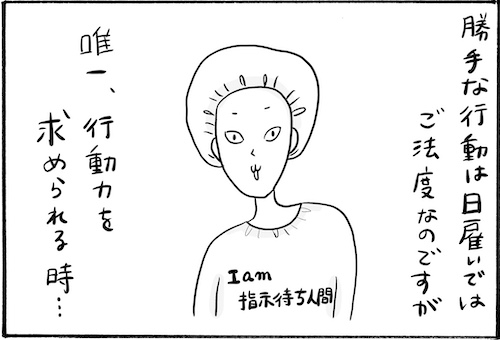 勝手な行動は日雇いでは
ご法度なのですが
I am
指示待ち人間
唯一、行動力を
求められる時…